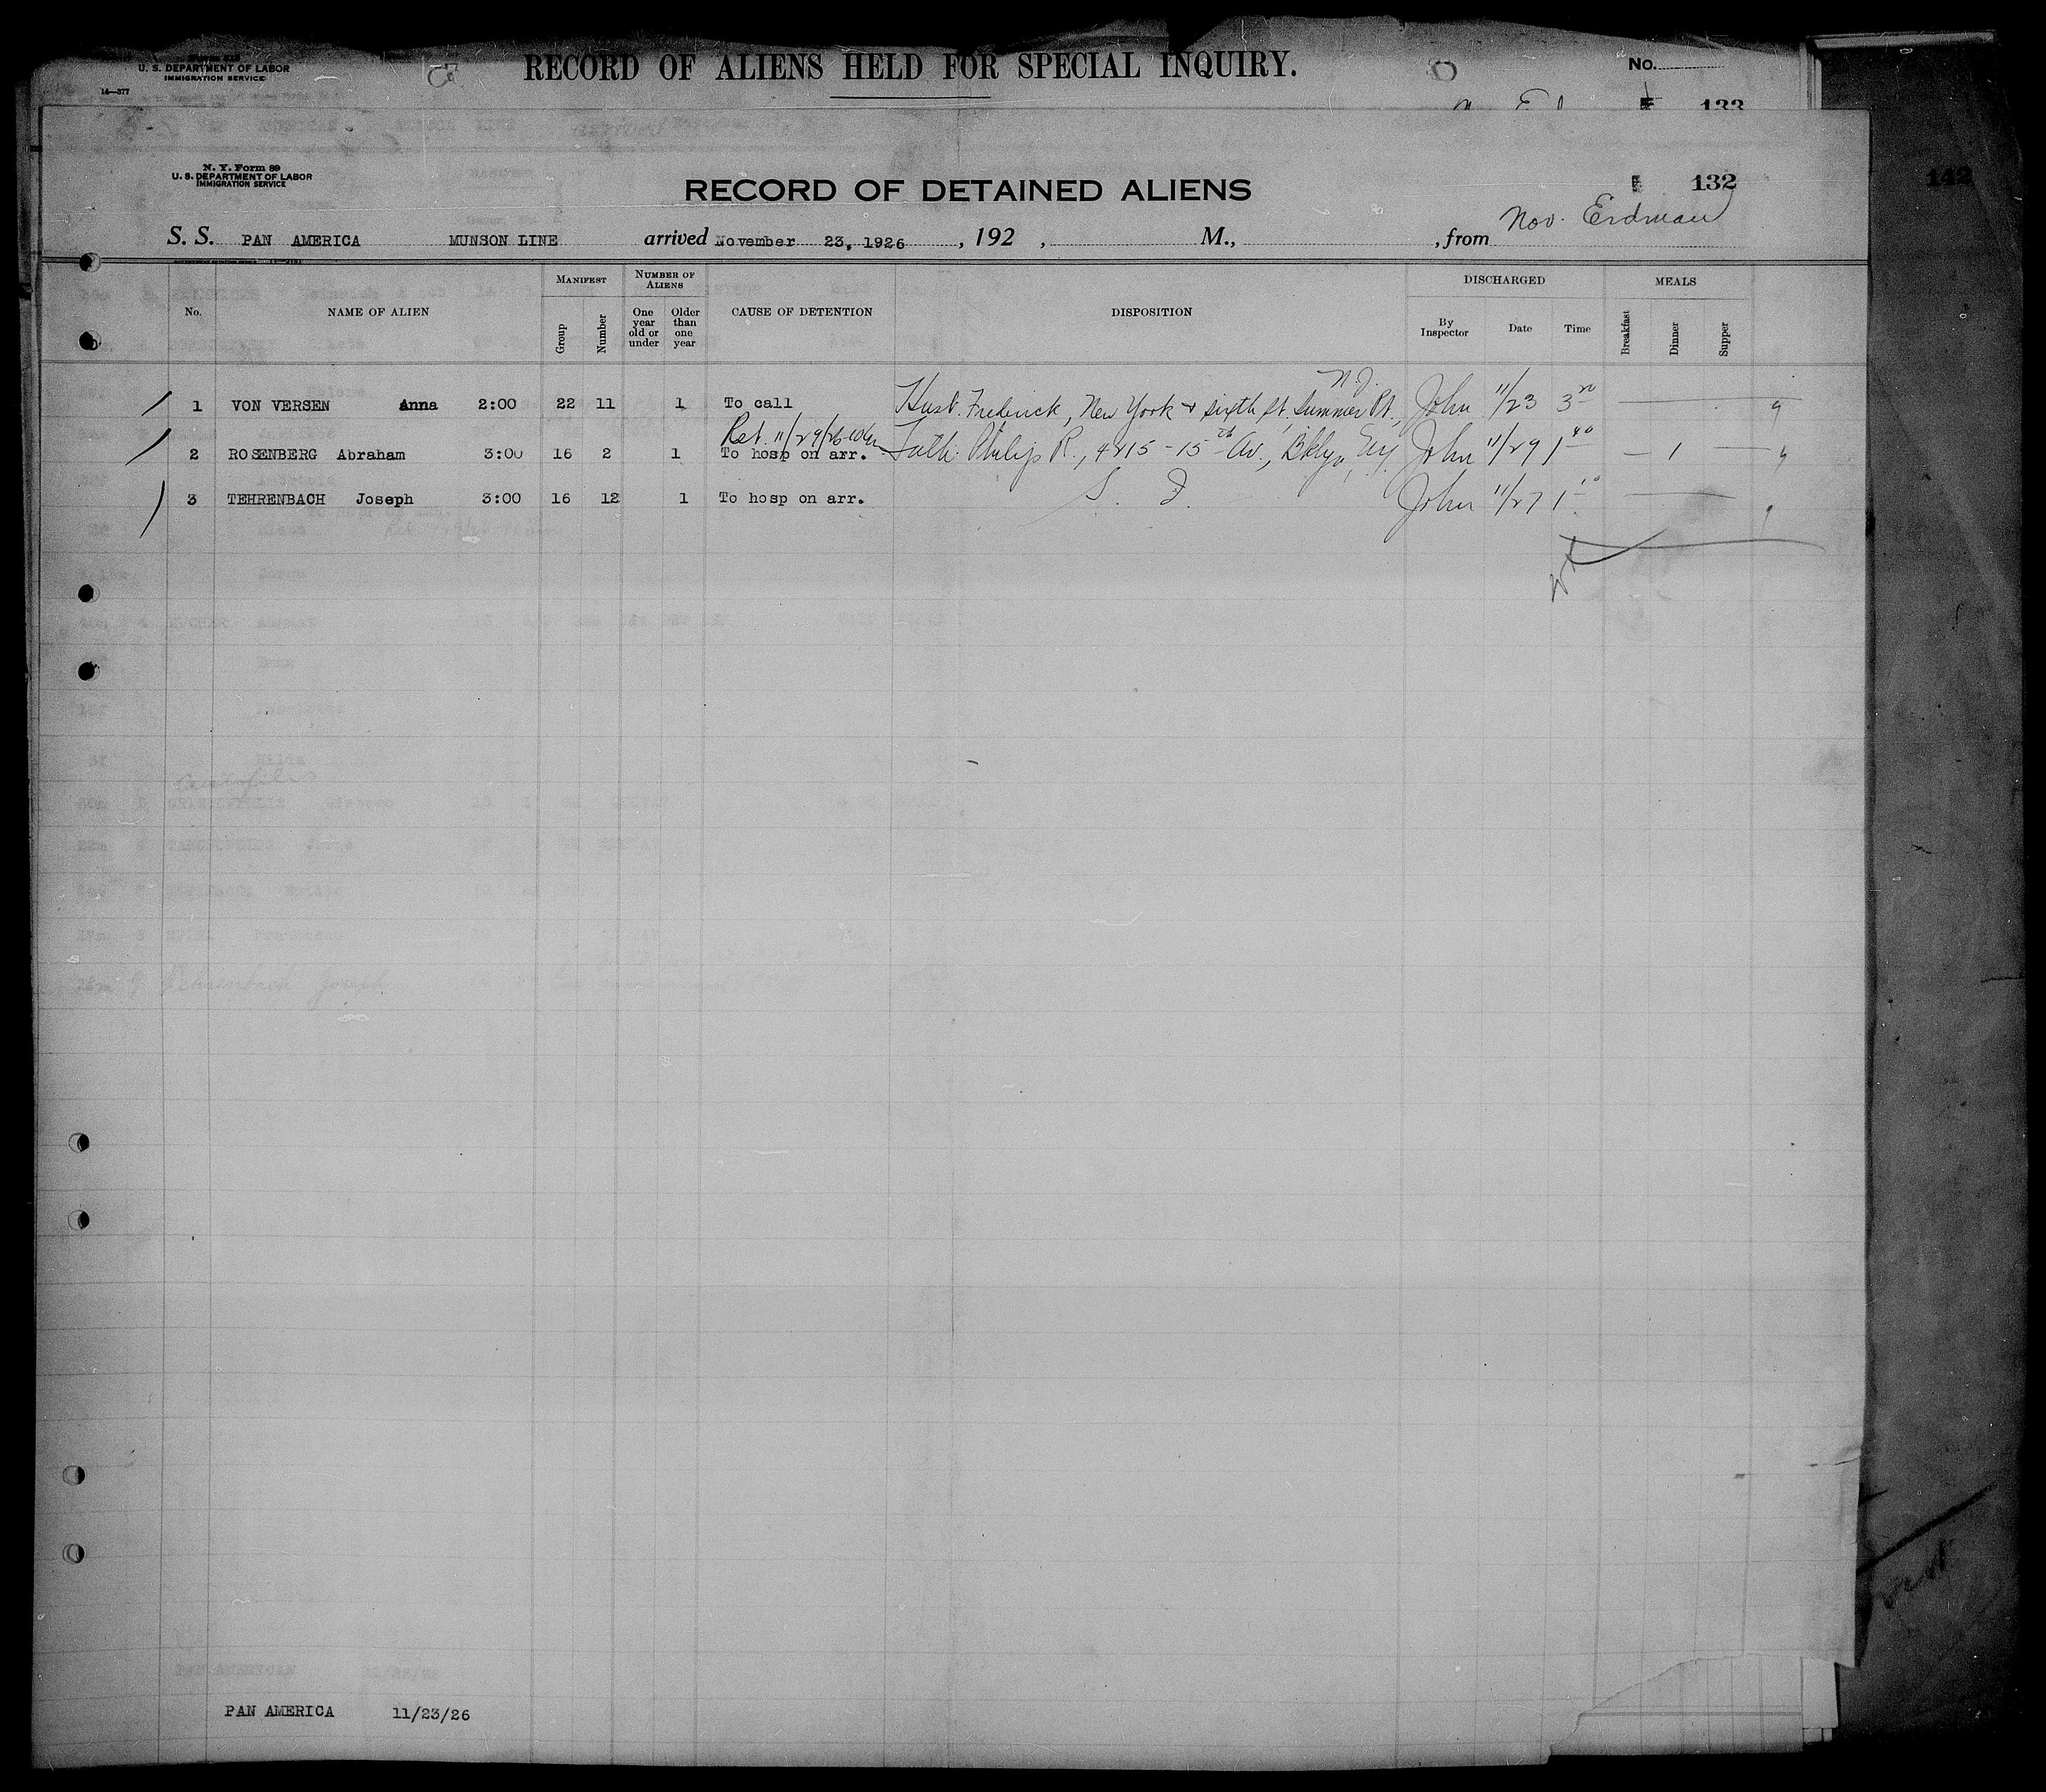 U. S. DEPARTMENT OF LABOR
IMMIGRATION SERVICE
14—377
RECORD OF ALIENS HELD FOR SPECIAL INQUIRY.
No.
133
N. Y. Form 89
U. S. DEPARTMENT OF LABOR
IMMIGRATION SERVICE
RECORD OF DETAINED ALIENS
132
142
Nov. Erdman
S. S. PAN AMERICA MUNSON LINE arrived November 23, 1926, 192 , M., , from
No. NAME OF ALIEN MANIFEST NUMBER OF ALIENS CAUSE OF DETENTION DISPOSITION DISCHARGED MEALS
Group Number One year old or under Older than one year By Inspector Date Time Breakfast Dinner Supper
N.J.
1 VON VERSEN Anna 2:00 22 11 1 To call Husb. Frederick, New York & Sixth St. Summer Pt., John 11/23 3
Ret. 11/29/26
2 ROSENBERG Abraham 3:00 16 2 1 To hosp on arr. Fath. Philip R., 4215 - 15th Av., Bklyn, NY John 11/29 1 40 1
3 TEHRENBACH Joseph 3:00 16 12 1 To hosp on arr. S. I. John 11/27 1 10
Fehrenbach Joseph
PAN AMERICAN
PAN AMERICA 11/23/26